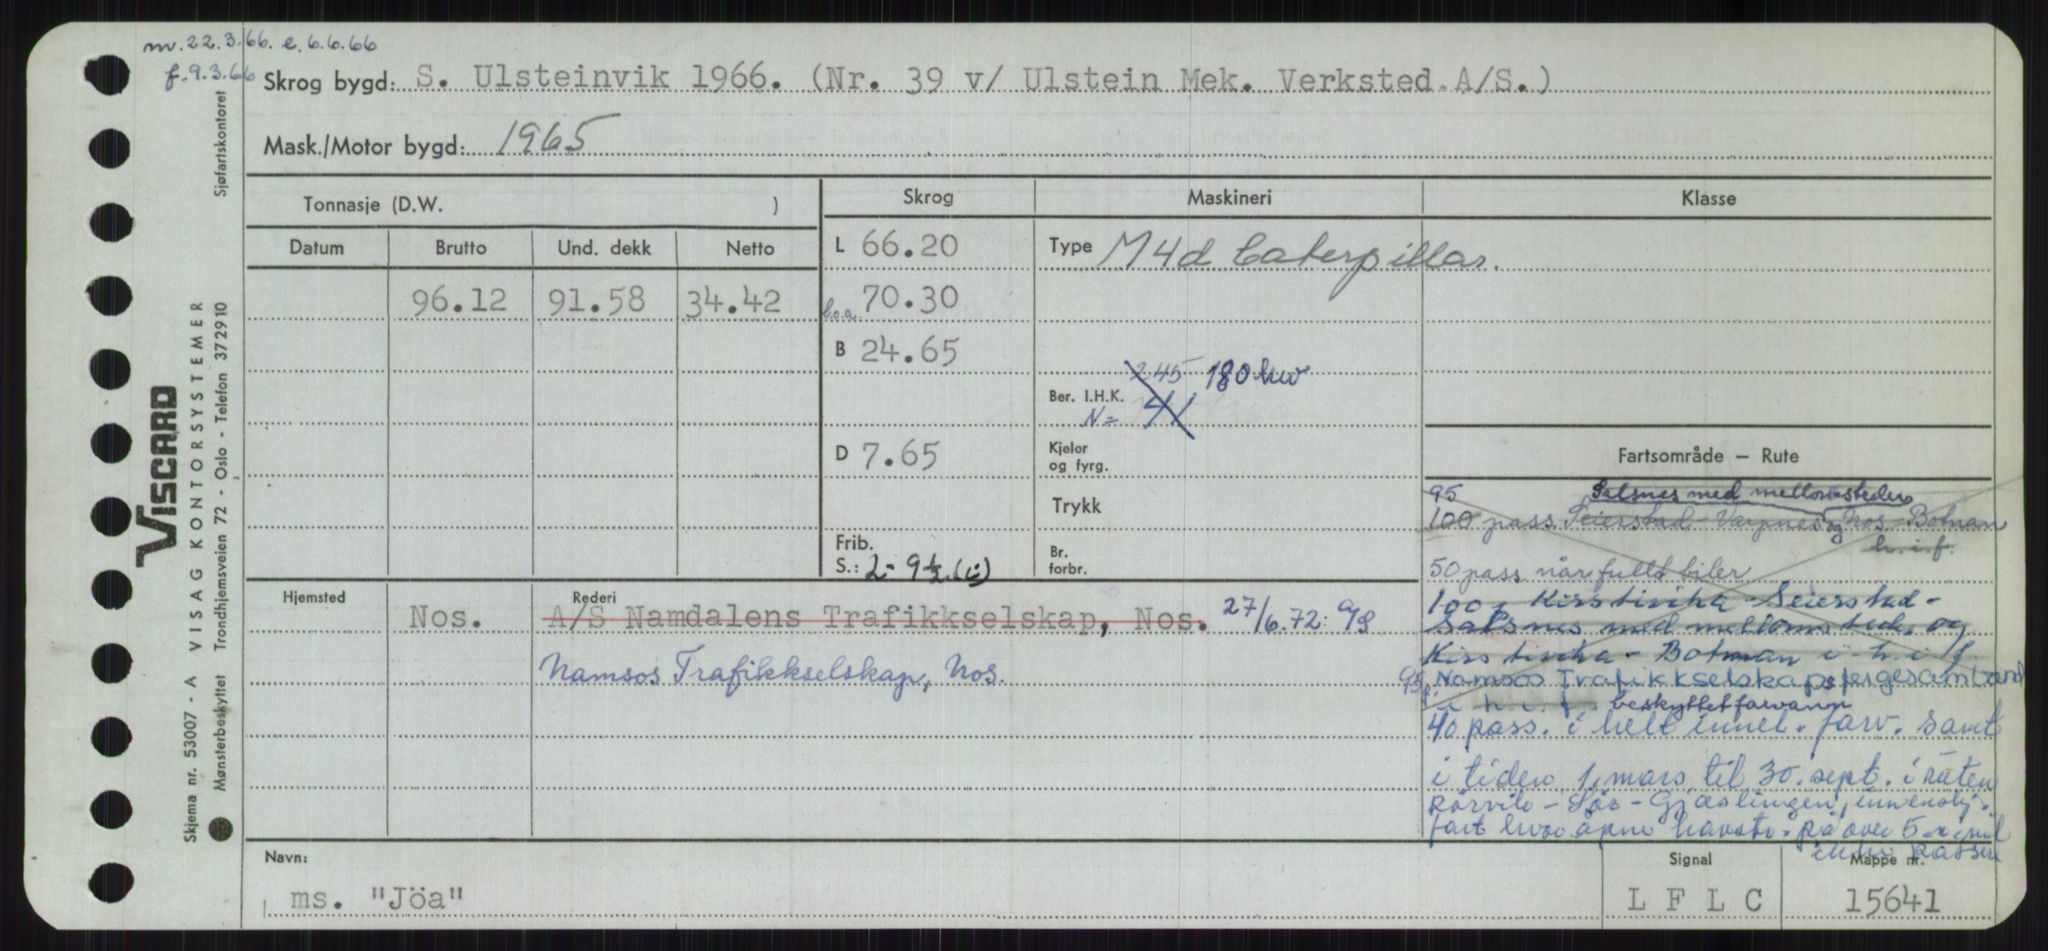 m. 22.3.66. e. 6.6.66
f. 9.3.66
Skrog bygd: S. Ulsteinvik 1966. (Nr. 39 v/ Ulstein Mek. Verksted A/S.)
Mask./Motor bygd: 1965
Tonnasje (D.W. )
Skrog
Maskineri
Klasse
Datum Brutto Und. dekk Netto
L 66.20
Type M4d Caterpillar.
96.12 91.58 34.42
l.o.a. 70.30
B 24.65
245 180 kw
Ber. I.H.K.
N= 41
D 7.65
Kjeler
og fyrg.
Fartsområde — Rute
Trykk
95 Salsnes med mellomsteder
100 pass Seierstad - Varpnes og Nos - Botnan
h.i.f.
Frib.
S.: 2 - 9½ (i)
Br.
forbr.
50 pass når fullt biler
100 Seierstad -
Salsnes med mellomsted. og
Botnan i h. i f.
Hjemsted
Nos.
Rederi
A/S Namdalens Trafikkselskap, Nos. 27/6.72: A/S
Namsos Trafikkselskap, Nos.
95 Namsos Trafikkselskaps fergesamband
i h. i. f. beskyttet farvann
40 pass. i helt innel. farv. samt
i tiden 1. mars til 30. sept. i ruten
Rørvik - Sør-Gjæslingen, innenskj.
fart hvor åpne havstr. på over 5 n. mil
Navn:
ms. "Jöa"
Signal
L F L C
Mappe nr.
15641
Sjøfartskontoret
VISCARD
VISAG KONTORSYSTEMER
Trondhjemsveien 72 - Oslo - Telefon 372910
Skjema nr. 53007 - A
Mønsterbeskyttet